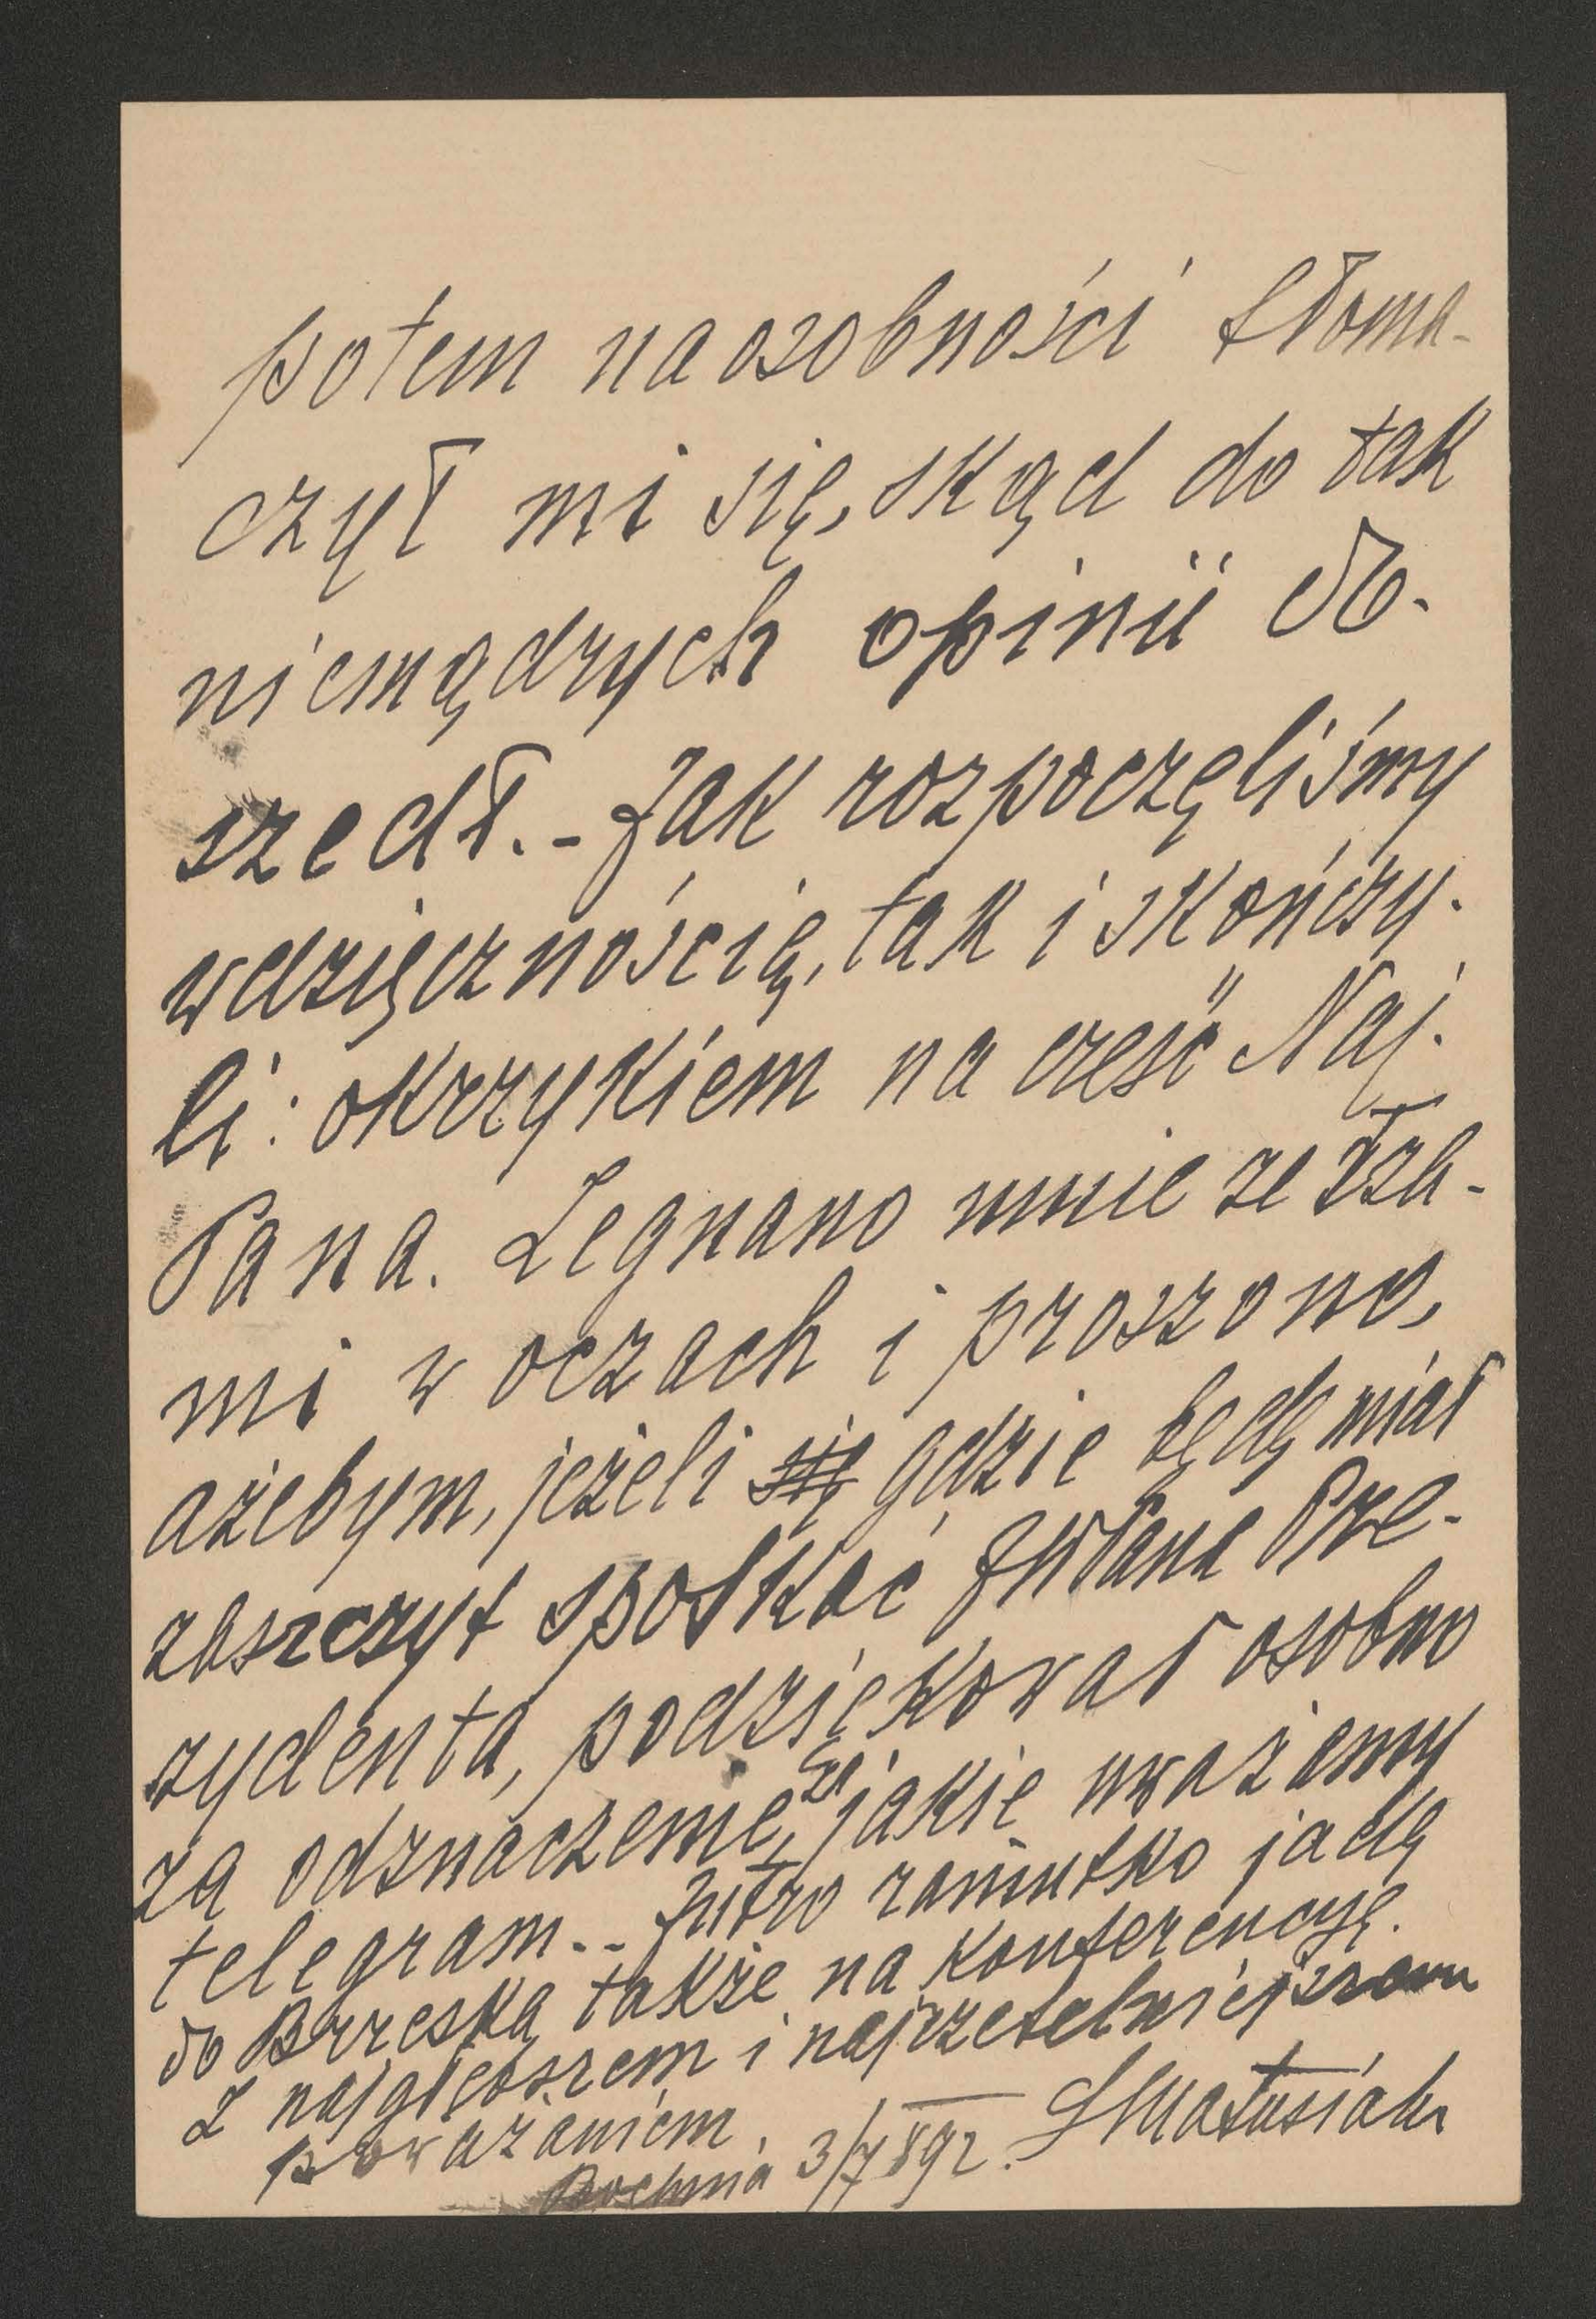 potem na osobności tłoma-
czył mi się, skąd do tak
niemądrych opinii do-
szedł. - Jak rozpoczęliśmy
wdzięcznością, tak i skończy-
li: okrzykiem na cześć Naj.
Pana. Żegnano mnie ze łza-
mi w oczach i proszono,
ażebym, jeżeli się gdzie będę miał
zaszczyt spotkać JWPana Pre-
zydenta, podziękował osobno
za odznaczenie, za jakie uważamy
telegram. - Jutro raniutko jadę
do Brzeska także na konferencyę.
Z najgłębszem i najrzetelniejszem
poważaniem.
SMatusiak
Bochnia 3/7 892.